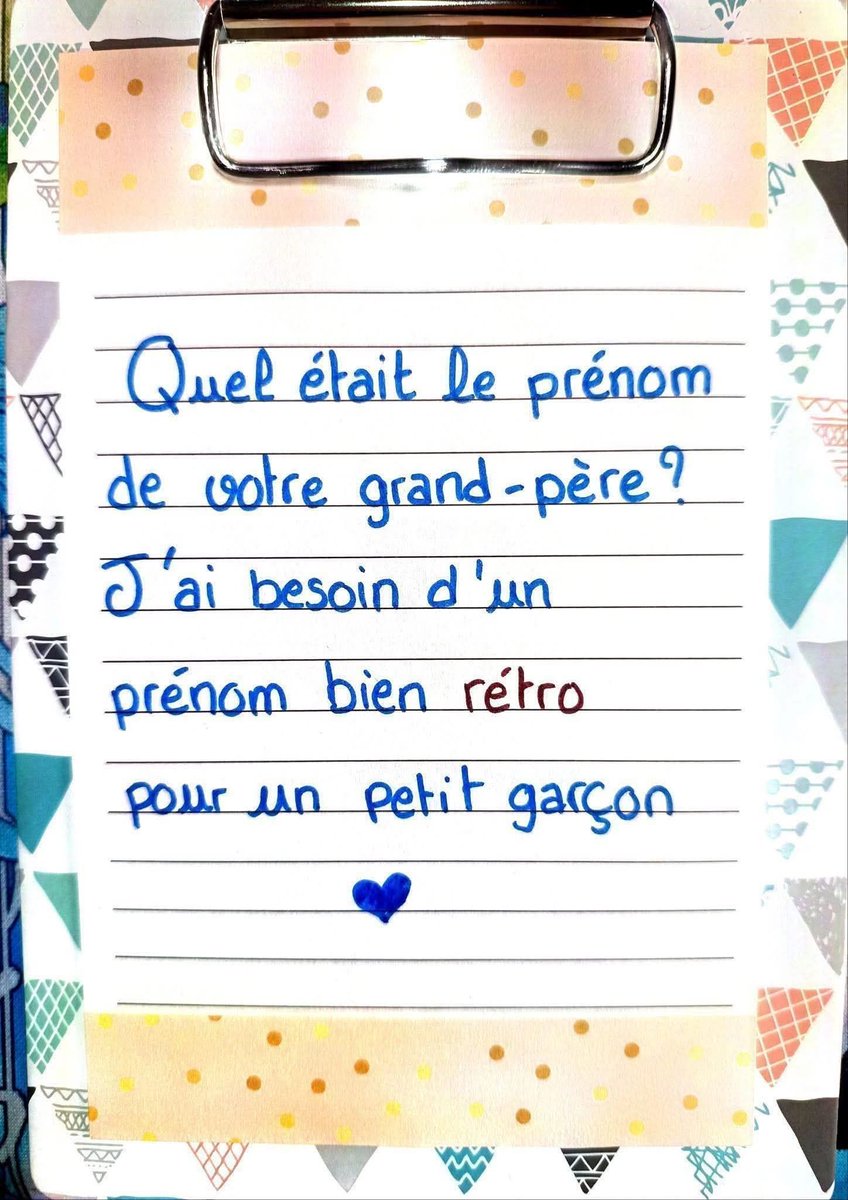 Quel était le prénom
de votre grand-père?
J'ai besoin d'un
prénom bien rétro
pour un petit garçon